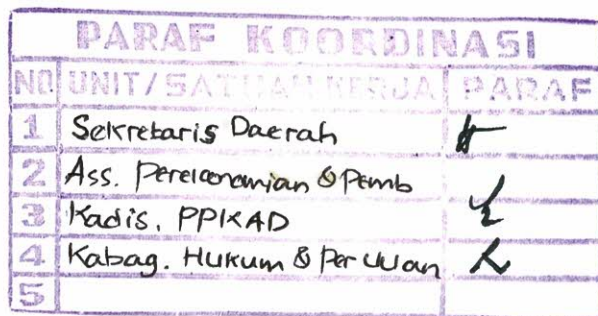 PARAF KOORDINASI
NO UNIT/SATUAN KERJA PARAF
1 Sekretaris Daerah
2 Ass. Perekonomian & Pemb
3 Kadis. PPKAD
4 Kabag. Hukum & Per UUan
5